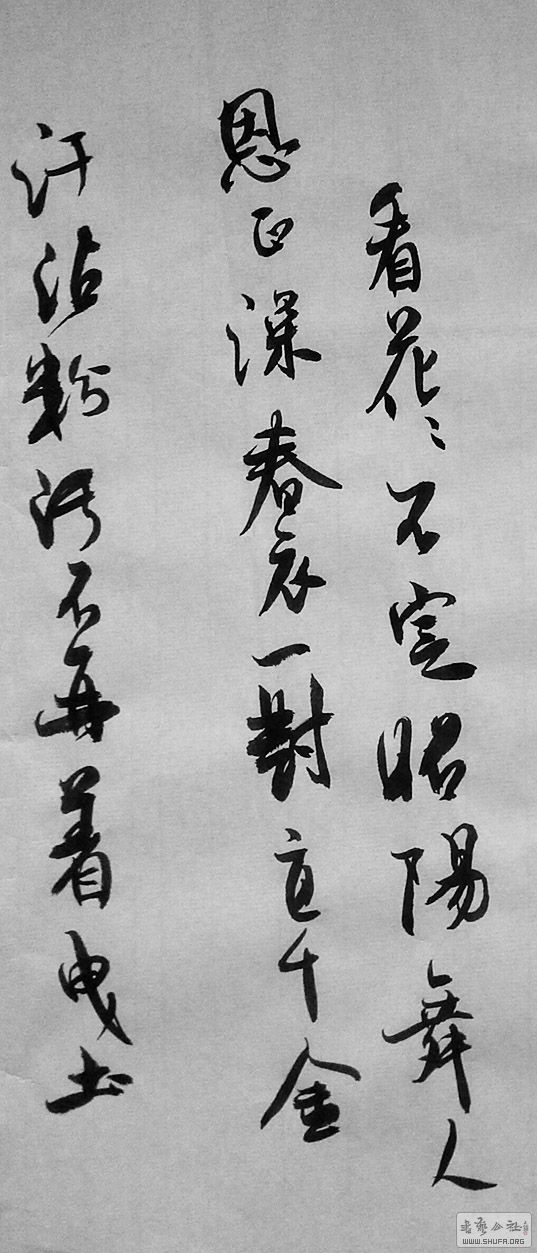 看花花不定昭陽舞人
恩正深春衣一對直千金
汗沾粉污不再著曳土
書藝公社
WWW.SHUFA.ORG